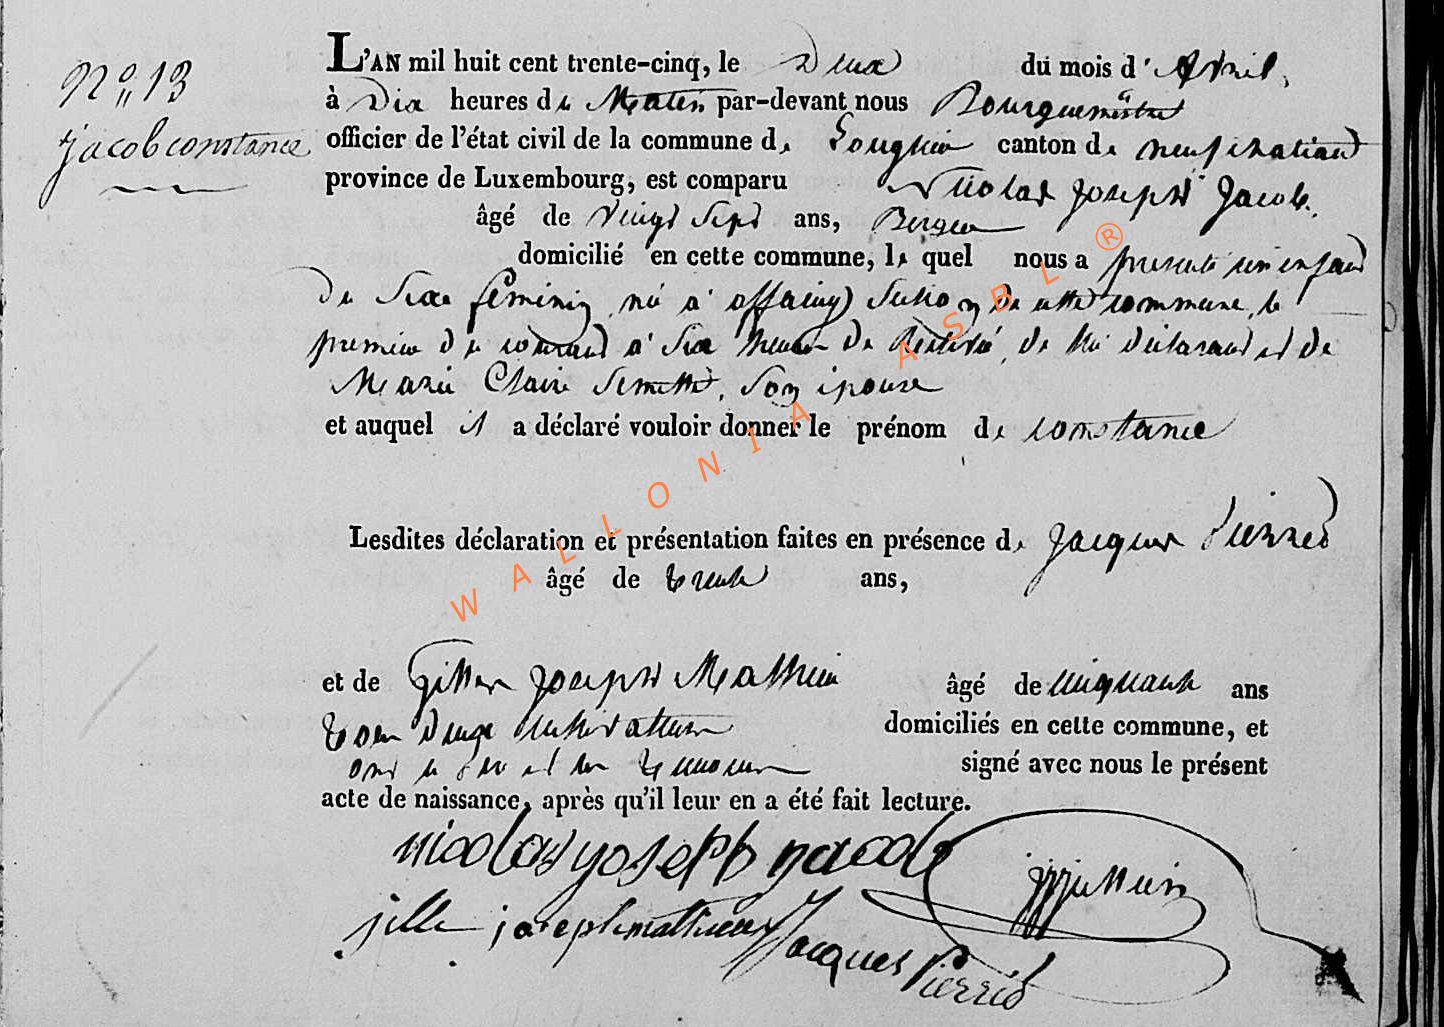 N° 13
jacob constance
L'AN mil huit cent trente-cinq, le Deux du mois d'Avril,
à Dix heures du Matin par-devant nous Bourguemestre
officier de l'état civil de la commune de Longlier canton de neufchateau
province de Luxembourg, est comparu Nicolas Joseph Jacob.
âgé de vingt Sept ans, Berger
domicilié en cette commune, le quel nous a presenté un enfant
du Sexe féminin né a offaing Section de cette commune, le
premier du courant a Six heures de Relevé, de lui déclarant et de
Marie Claire Semette, Son épouse
et auquel il a déclaré vouloir donner le prénom de constance
Lesdites déclaration et présentation faites en présence de Jacques Pierred
âgé de trente ans,
et de Gilles Joseph Mathieu âgé de cinquante ans
tous deux cultivateurs domiciliés en cette commune, et
ont le père et les temoins signé avec nous le présent
acte de naissance, après qu'il leur en a été fait lecture.
nicolas yoseph yacob
jille joseph mathieux
Jacques Pierred
WALLONIA ASBL ®